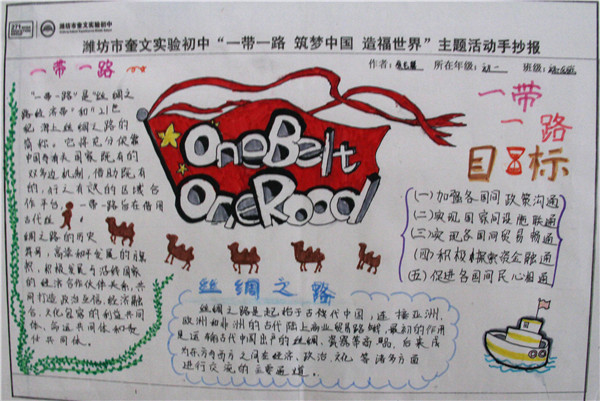 271
潍坊市奎文实验初中
潍坊市奎文实验初中“一带一路 筑梦中国 造福世界”主题活动手抄报
作者: 所在年级:初一 班级:
一带一路
“一带一路”是“丝绸之
路经济带”和“21世
纪海上丝绸之路的
简称。它将充分依靠
中国与有关国家既有的
双多边机制,借助既有
的、行之有效的区域合
作平台,一带一路旨在借用
古代丝
绸之路的历史
符号,高举和平发展的旗
帜,积极发展与沿线国家
的经济合作伙伴关系,共
同打造政治互信、经济融
合、文化包容的利益共同
体、命运共同体和责
任共同体。
One Belt
One Road
一带
一路
目标
(一)加强各国间政策沟通
(二)实现国家间设施联通
(三)实现各国间贸易畅通
(四)积极探索资金融通
(五)促进各国间民心相通
丝绸之路
丝绸之路是起始于古代中国,连接亚洲、
欧洲和非洲的古代陆上商业贸易路线,最初的作用
是运输古代中国出产的丝绸、瓷器等商品,后来成
为东方与西方之间在经济、政治、文化等诸多方面
进行交流的主要通道。